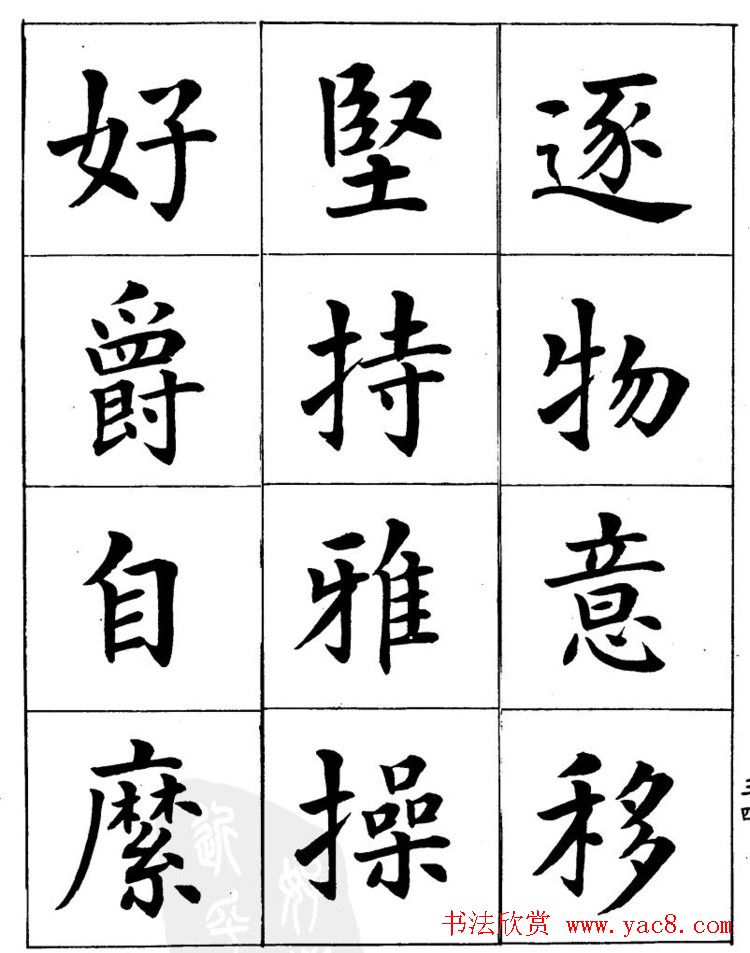 逐物意移
堅持雅操
好爵自縻
三四
书法欣赏 www.yac8.com